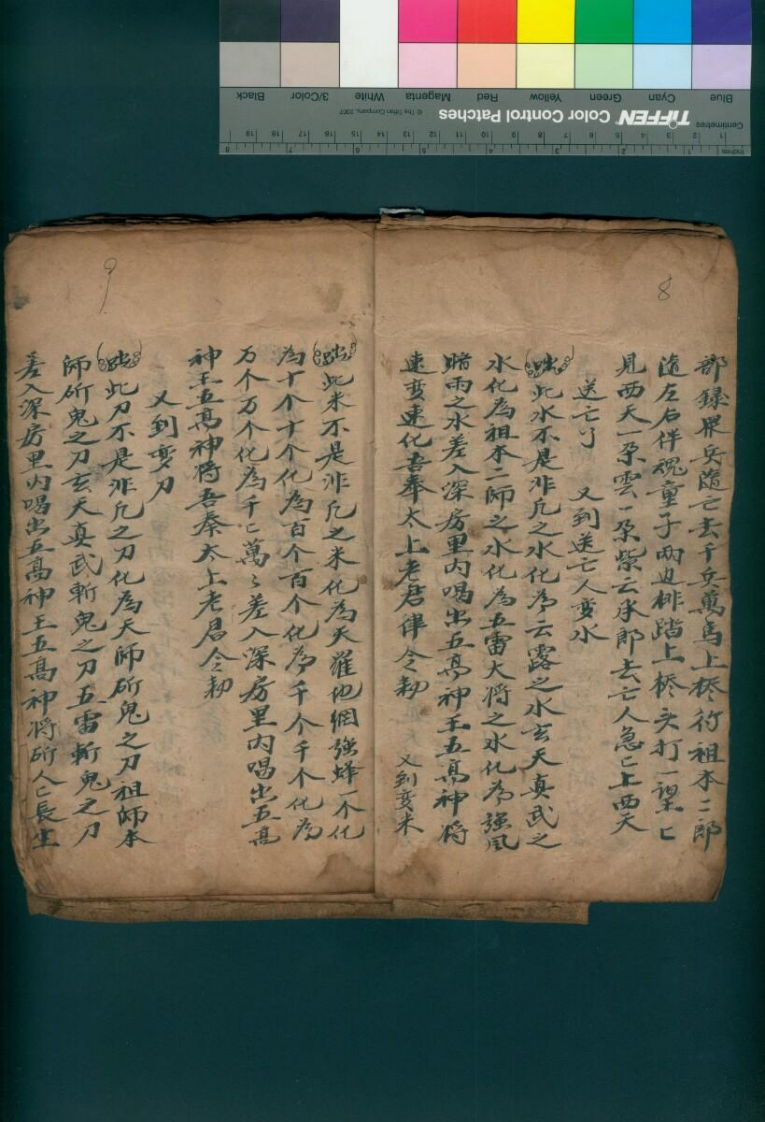 Blue Cyan Green Yellow Red Magenta White 3/Color Black
Centimetres TIFFEN Color Control Patches © The Tiffen Company, 2007
Inches
8
部録眾兵隨亡去千兵萬馬上橋行祖本二郎
隨左右伴魂童子兩边排踏上橋头打一望匕
見西天一朶雲一朶紫云承郎去亡人急匕上西天
送亡丁 又到送亡人变水
咄此水不是非凡之水化為云露之水玄天真武之
水化為祖本二師之水化為五雷大将之水化為強風
暗雨之水差入深房里内喝出五高神王五高神将
速变速化吾奉太上老君律令勅 又到变米
9
咄此米不是非凡之米化為天羅地網強蜂一个化
為十个十个化為百个百个化為千个千个化為
万个万个化為千匕萬匕差入深房里内喝出五高
神王五高神将吾奉太上老君令勅
又到变刀
咄此刀不是非凡之刀化為天師斫鬼之刀祖師本
師斫鬼之刀玄天真武斬鬼之刀五雷斬鬼之刀
差入深房里内喝出五高神王五高神将斫人匕長生